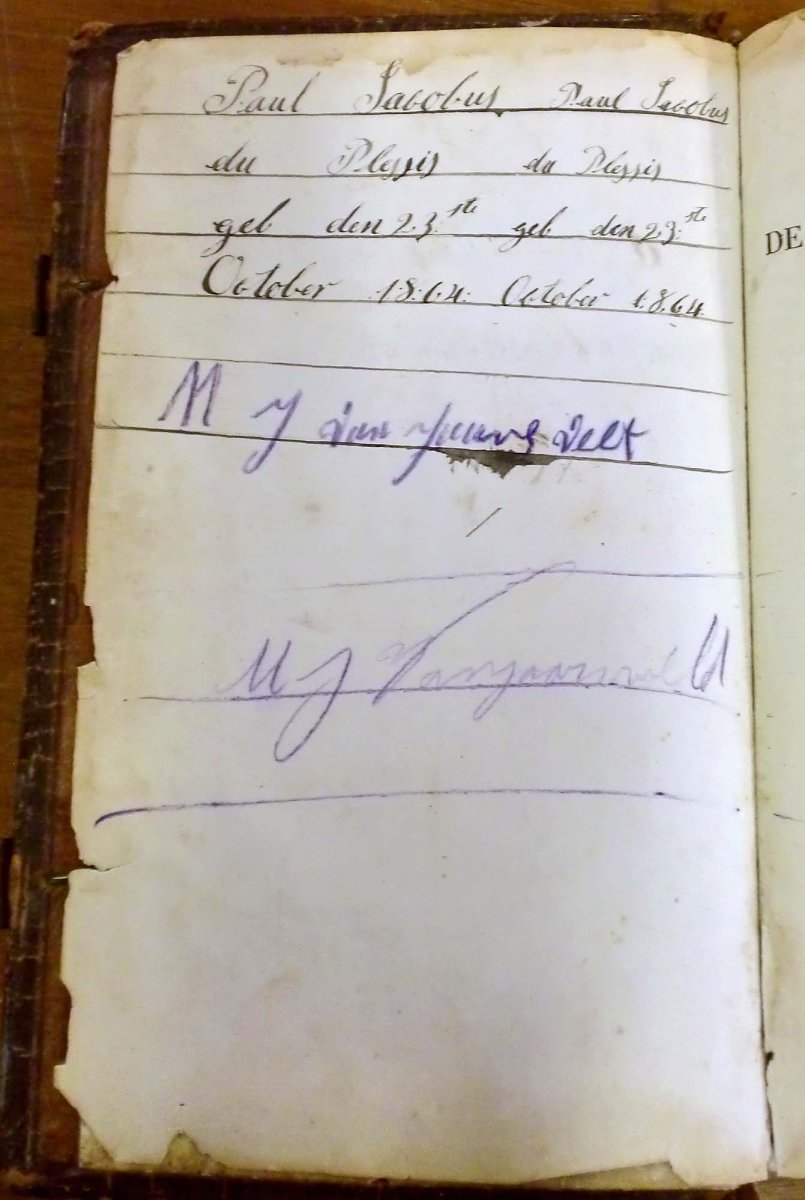 Paul Jacobus Paul Jacobus
du Plessis du Plessis
geb den 23.ste geb den 23.ste
October 1864. October 1864.
M J van
M J Van
DE